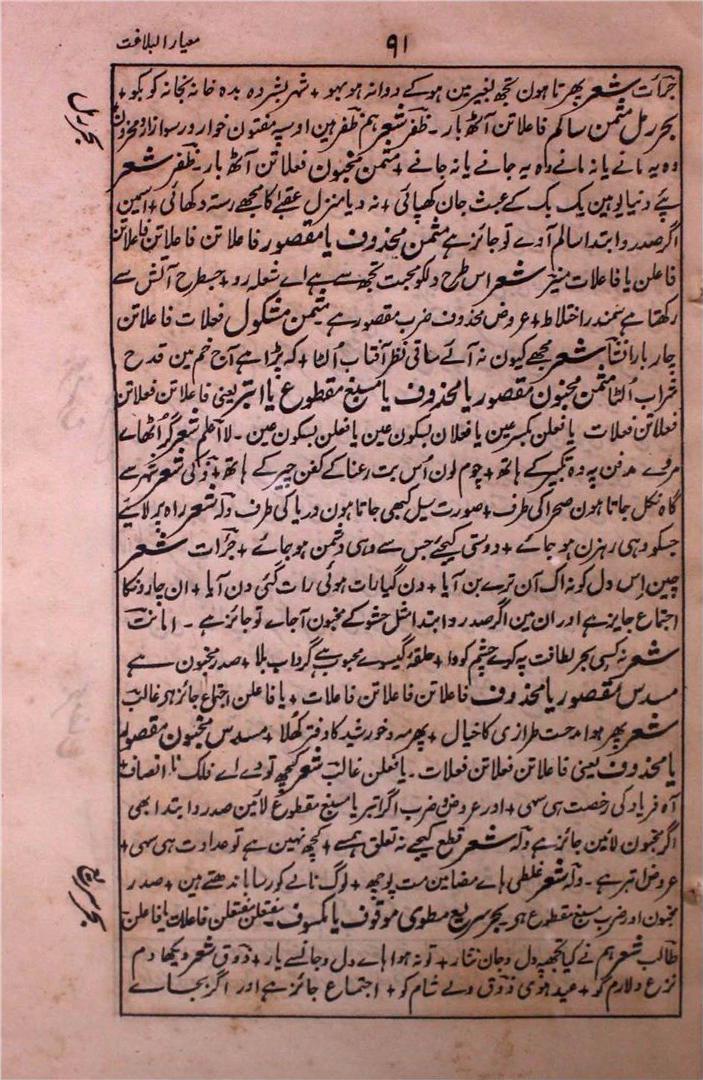 معیار البلاغت
۹۱
جرأت شعر پھرتا ہون تجھ بغیر مین ہوکے دوانہ ہو بہو + شہر بشہر دہ بدہ خانہ بخانہ کو بکو +
بحر رمل مثمن سالم فاعلاتن آٹھ بار - ظفر شعر ہم ظفر ہین اوسپہ مفتون خوار و رسوا زار و محزون
وہ یہ مانے یا نہ مانے واہ یہ جانے یا نہ جانے + مثمن مخبون فعلاتن آٹھ بار - ظفر شعر
پئے دنیا یوہین یک بک کے عبث جان کھپائی + نہ دیا منزل عقبے کا مجھے رستہ دکھائی + اسمین
اگر صدر و ابتدا سالم آوے تو جائز ہے مثمن محذوف یا مقصور فاعلاتن فاعلاتن فاعلاتن
فاعلن یا فاعلات منیر شعر اس طرح دلکو محبت تجھ سے ہے اے شعلہ رو + جسطرح آتش سے
رکھتا ہے سمندر اختلاط + عروض محذوف ضرب مقصور ہے مثمن مشکول فعلات فاعلاتن
چار بار انشا شعر مجھے کیون نہ آئے ساقی نظر آفتاب اُلٹا + کہ پڑا ہے آج خم مین قدح
شراب اُلٹا مثمن مخبون مقصور یا محذوف یا مسبغ مقطوع یا ابتر یعنی فاعلاتن فعلاتن
فعلاتن فعلات یا فعلن بکسر عین یا فعلان بسکون عین یا فعلن بسکون عین - لا اعلم شعر گر اُٹھاے
مروے مدفن پہ وہ تکبیر کے ہاتھ + چوم لون اُس بت رعنا کے کفن چیر کے ہاتھ + ذکی شعر شہر سے
گاہ نکل جاتا ہون صحرا کی طرف + صورت سیل کبھی جاتا ہون دریا کی طرف ولہ شعر راہ پر لائیے
جسکو وہی رہزن ہو جائے + دوستی کیجئے جس سے وہی دشمن ہو جائے + جرأت شعر
چین اِس دل کو نہ اک آن ترے بن آیا + دن گیا رات ہوئی رات گئی دن آیا + ان چارونکا
اجتماع جایز ہے اور ان مین اگر صدر و ابتدا مثل حشو کے مخبون آجاے تو جائز ہے - امانت
شعر نہ کسی بحر لطافت پہ کرے چشم کو وا + حلقہ گیسوے محبوب ہے گرداب بلا + صدر مخبون ہے
مسدس مقصور یا محذوف فاعلاتن فاعلاتن فاعلات + یا فاعلن اجتماع جائز ہر غالب
شعر پھر ہوا مدحت طرازی کا خیال + پھر مہ و خورشید کا دفتر کھلا + مسدس مخبون مقصور
یا محذوف یعنی فاعلاتن فعلاتن فعلات - یا فعلن غالب شعر کچھ تو دے اے فلک نا انصاف
آہ و فریاد کی رخصت ہی سہی + اور عروض و ضرب اگر ابتر یا مسبغ مقطوع لائین صدر و ابتدا بھی
اگر مخبون لائین جائز ہے ولہ شعر قطع کیجے نہ تعلق ہمسے + کچھ نہین ہے تو عداوت ہی سہی +
عروض ابتر ہے - ولہ شعر غلطی ہاے مضامین مت پوچھ + لوگ نالے کو رسا باندھتے ہین + صدر
مخبون اور ضرب مسبغ مقطوع ہر بحر سریع مطوی موقوف یا مکسوف مفتعلن مفتعلن فاعلات یا فاعلن
طالب شعر ہم نے کیا تجھپہ دل و جان نثار + تو نہ ہوا ہاے دل و جانسے یار + ذوق شعر دیکھا دم
نزع دلارم کو + عید ہوئی ذوق ولے شام کو + اجتماع جائز ہے اور اگر بجاے
بحر رمل
بحر سریع